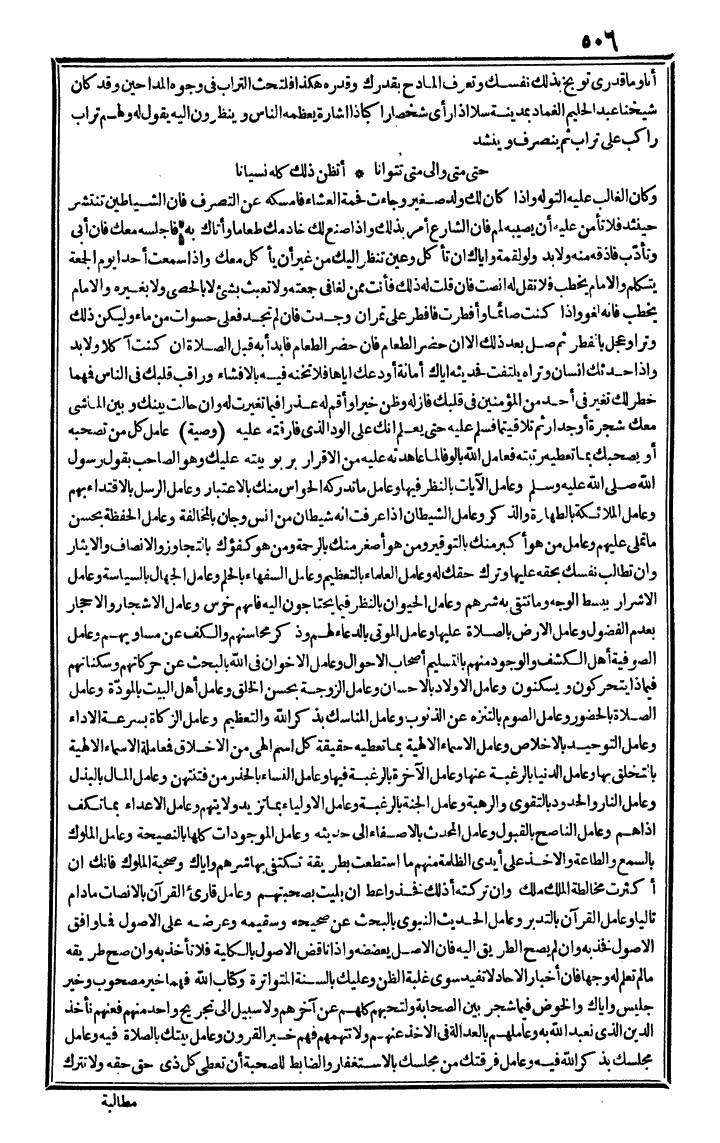 ٥٠٦
أنا وما قدرى توبيخ بذلك نفسك وتعرف المادح بقدرك وقدره هكذا فلتحث التراب فى وجوه المداحين وقد كان
شيخنا عبد الحليم الغماد بمدينة سلا اذا رأى شخصا راكبا ذا اشارة يعظمه الناس وينظرون اليه يقول له ولهم تراب
راكب على تراب ثم ينصرف وينشد
حتى متى والى متى تتوانا * أتظن ذلك كله نسيانا
وكان الغالب عليه التوله واذا كان لك ولد صغير وجاءت فحمة العشاء فامسكه عن التصرف فان الشياطين تنتشر
حينئذ فلا تأمن عليه أن يصيبه لمم فان الشارع أمر بذلك واذا صنع لك خادمك طعاما وأتاك به فاجلسه معك فان أبى
وتأدّب فاذقه منه ولا بد ولو لقمة واياك ان تأكل وعين تنظر اليك من غير أن يأكل معك واذا سمعت أحدا يوم الجمعة
يتكلم والامام يخطب فلا تقل له انصت فان قلت له ذلك فأنت ممن لغا فى جمعته ولا تعبث بشئ لا بالحصى ولا بغيره والامام
يخطب فانه لغو واذا كنت صائما وأفطرت فافطر على تمران وجدت فان لم تجد فعلى حسوات من ماء وليكن ذلك
وترا وعجل بالفطر ثم صل بعد ذلك الا ان حضر الطعام فان حضر الطعام فابدأ به قبل الصلاة ان كنت آكلا ولا بد
واذا حدثك انسان وتراه يلتفت فحديثه اياك أمانة أودعك اياها فلا تخنه فيه بالافشاء وراقب قلبك فى الناس فهما
خطر لك تغير فى أحد من المؤمنين فى قلبك فازله وظن خيرا وأقم له عذرا فيما تغيرت له وان حالت بينك وبين الماشى
معك شجرة أو جدار ثم تلاقيتما فسلم عليه حتى يعلم انك على الود الذى فارقته عليه (وصية) عامل كل من تصحبه
أو يصحبك بما تعطيه رتبته فعامل الله بالوفا لما عاهدته عليه من الاقرار بربوبيته عليك وهو الصاحب بقول رسول
الله صلى الله عليه وسلم وعامل الآيات بالنظر فيها وعامل ما تدركه الحواس منك بالاعتبار وعامل الرسل بالاقتداء بهم
وعامل الملائكة بالطهارة والذكر وعامل الشيطان اذا عرفت انه شيطان من انس وجان بالمخالفة وعامل الحفظة بحسن
ما تملى عليهم وعامل من هو أكبر منك بالتوقير ومن هو أصغر منك بالرحمة ومن هو كفؤك بالتجاوز والانصاف والايثار
وان تطالب نفسك بحقه عليها وترك حقك له وعامل العلماء بالتعظيم وعامل السفهاء بالحلم وعامل الجهال بالسياسة وعامل
الاشرار ببسط الوجه وما تتقى به شرهم وعامل الحيوان بالنظر فيما يحتاجون اليه فانهم خرس وعامل الاشجار والاحجار
بعدم الفضول وعامل الارض بالصلاة عليها وعامل الموتى بالدعاء لهم وذكر محاسنهم والكف عن مساويهم وعامل
الصوفية أهل الكشف والوجود منهم بالتسليم أصحاب الاحوال وعامل الاخوان فى الله بالبحث عن حركاتهم وسكناتهم
فيماذا يتحركون ويسكنون وعامل الاولاد بالاحسان وعامل الزوجة بحسن الخلق وعامل أهل البيت بالمودّة وعامل
الصلاة بالحضور وعامل الصوم بالتنزه عن الذنوب وعامل المناسك بذكر الله والتعظيم وعامل الزكاة بسرعة الاداء
وعامل التوحيد بالاخلاص وعامل الاسماء الالهية بما تعطيه حقيقة كل اسم الهى من الاخلاق فعاملة الاسماء الالهية
بالتخلق بها وعامل الدنيا بالرغبة عنها وعامل الآخرة بالرغبة فيها وعامل النساء بالحذر من فتنتهن وعامل المال بالبذل
وعامل النار والحدود بالتقوى والرهبة وعامل الجنة بالرغبة وعامل الاولياء بما تزيد ولايتهم وعامل الاعداء بما تكف
اذاهم وعامل الناصح بالقبول وعامل المحدث بالاصغاء الى حديثه وعامل الموجودات كلها بالنصيحة وعامل الملوك
بالسمع والطاعة والاخذ على أيدى الظلمة منهم ما استطعت بطريقة تكتفى بها شرهم واياك وصحبة الملوك فانك ان
أكثرت مخالطة الملك ملك وان تركته أذلك فخذ واعط ان بليت بصحبتهم وعامل قارئ القرآن بالانصات مادام
تاليا وعامل القرآن بالتدبر وعامل الحديث النبوى بالبحث عن صحيحه وسقيمه وعرضه على الاصول فما وافق
الاصول فخذ به وان لم يصح الطريق اليه فان الاصل يعضضه واذا ناقض الاصول بالكلية فلا تأخذ به وان صح طريقه
ما لم تعلم له وجها فان أخبار الآحاد لا تفيد سوى غلبة الظن وعليك بالسنة المتواترة وكتاب الله فهما خير مصحوب وخير
جليس واياك والخوض فيما شجر بين الصحابة ولتحبهم كلهم عن آخرهم ولا سبيل الى تجريح واحد منهم فعنهم نأخذ
الدين الذى نعبد الله به وعاملهم بالعدالة فى الاخذ عنهم ولا تتهمهم فهم خير القرون وعامل بيتك بالصلاة فيه وعامل
مجلسك بذكر الله فيه وعامل فرقتك من مجلسك بالاستغفار والضابط للصحبة أن تعطى كل ذى حق حقه ولا تترك
مطالبة